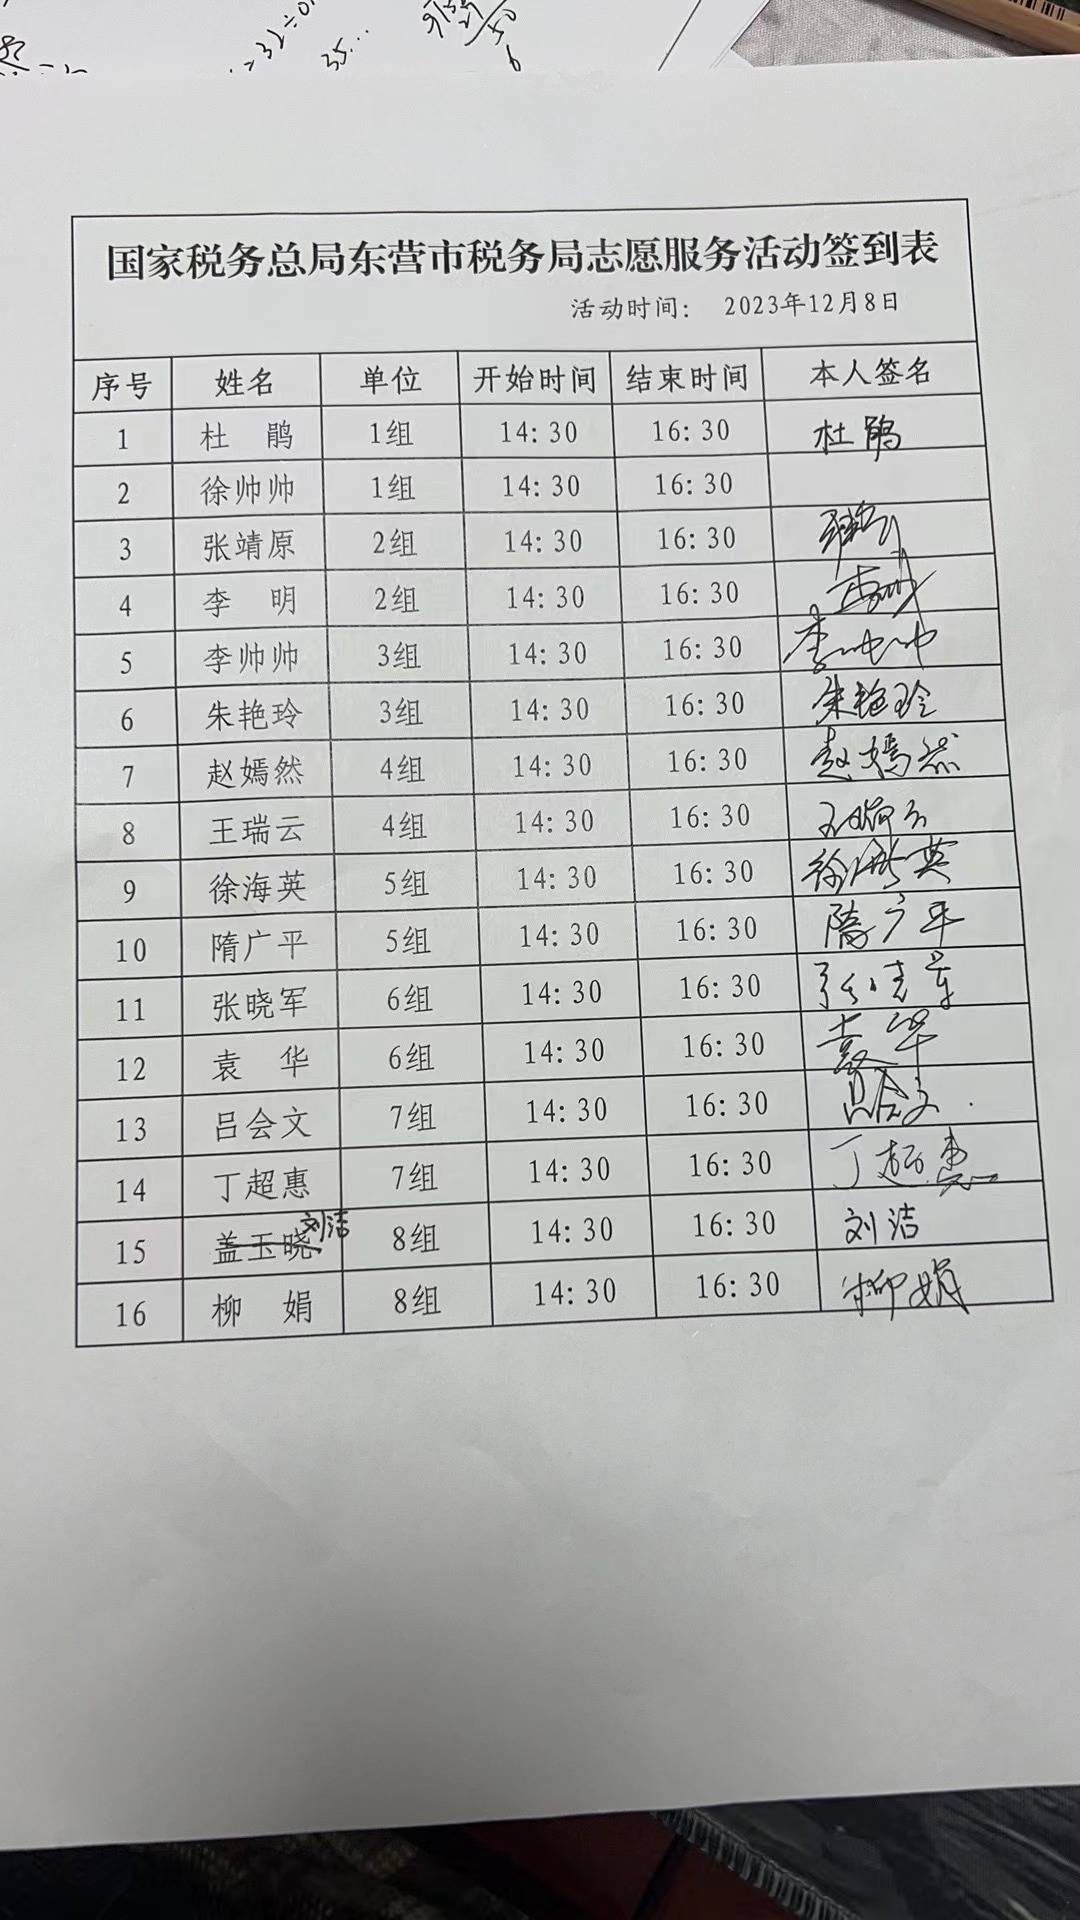 35...
国家税务总局东营市税务局志愿服务活动签到表
活动时间： 2023年12月8日
序号 姓名 单位 开始时间 结束时间 本人签名
1 杜 鹃 1组 14:30 16:30 杜鹃
2 徐帅帅 1组 14:30 16:30
3 张靖原 2组 14:30 16:30
4 李 明 2组 14:30 16:30
5 李帅帅 3组 14:30 16:30 李帅帅
6 朱艳玲 3组 14:30 16:30 朱艳玲
7 赵嫣然 4组 14:30 16:30 赵嫣然
8 王瑞云 4组 14:30 16:30 王瑞云
9 徐海英 5组 14:30 16:30 徐海英
10 隋广平 5组 14:30 16:30 隋广平
11 张晓军 6组 14:30 16:30 张晓军
12 袁 华 6组 14:30 16:30 袁华
13 吕会文 7组 14:30 16:30 吕会文
14 丁超惠 7组 14:30 16:30 丁超惠
15 盖玉晓 刘洁 8组 14:30 16:30 刘洁
16 柳 娟 8组 14:30 16:30 柳娟